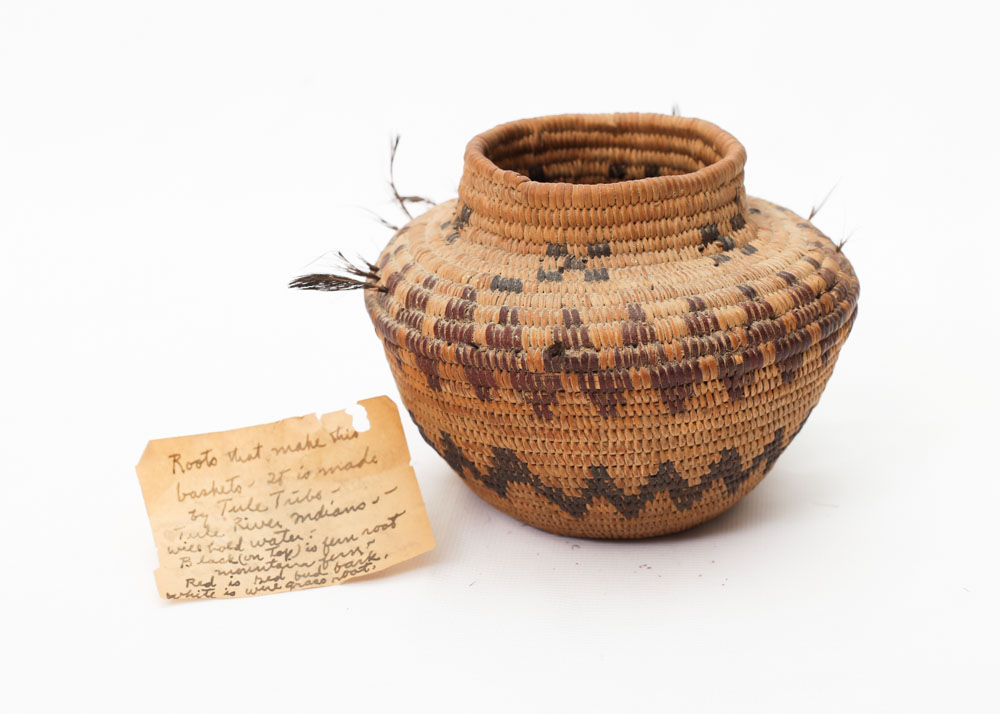 Roots that make this
baskets - It is made
by Tule Tribe -
Tule River Indians - -
will hold water -
Black (on top) is fern root
mountain fern -
Red is Red bud bark.
White is wire grass root.